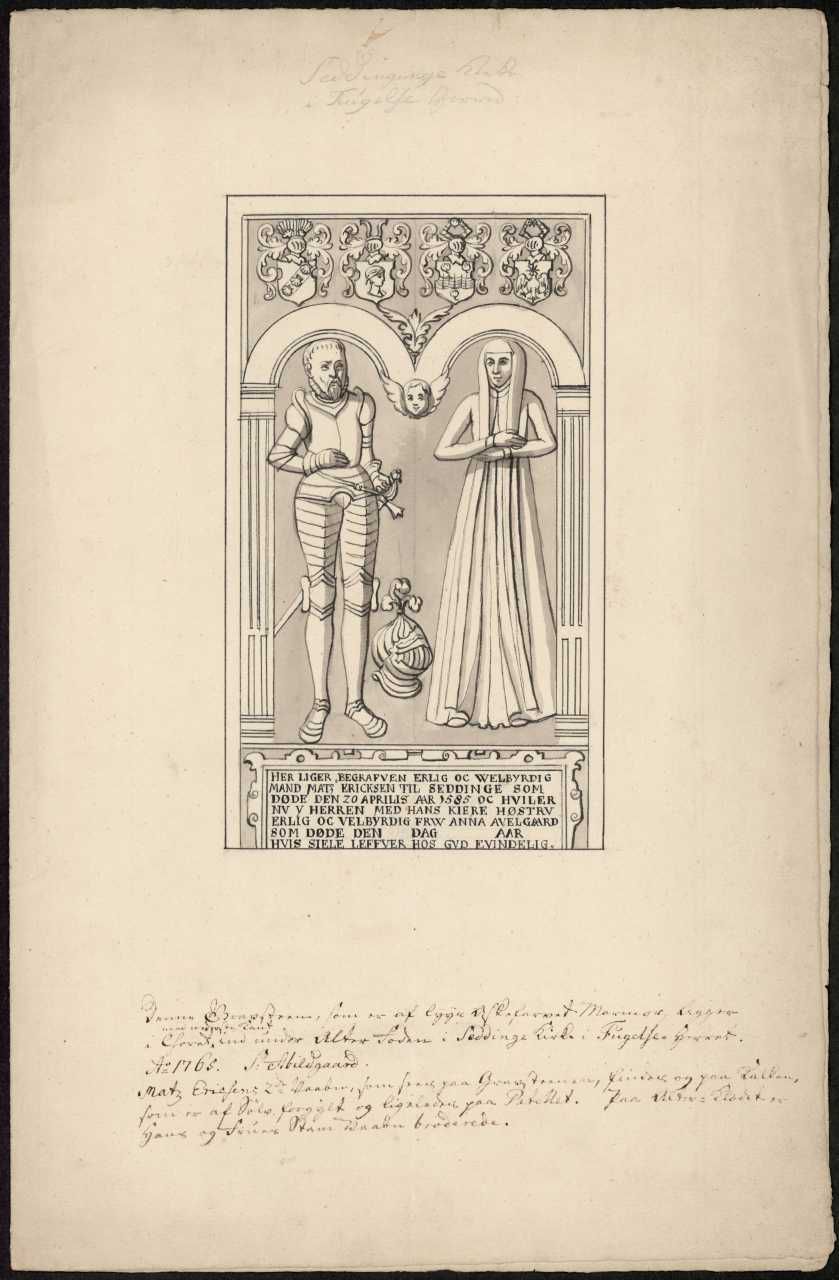 Seddingege Kirke
i Fugelse Herred.
HER LIGER BEGRAFVEN ERLIG OC WELBYRDIG
MAND MATS ERICKSEN TIL SEDDINGE SOM
DØDE DEN 20 APRILIS AAR 1585 OC HVILER
NV Y HERREN MED HANS KIERE HØSTRV
ERLIG OC VELBYRDIG FRW ANNA AVELGAARD
SOM DØDE DEN DAG AAR
HVIS SIELE LEFFVER HOS GVD EVINDELIG.
Denne Gravsteen, som er af lyse Askefarvet Marmor, Ligger
med nederste Kant
i Choret, ind under Alter Foden i Seddinge Kirke i Fugelse Herret.
Ao 1765. S: Abildgaard.
Matz Ericsens Vaaben, som sees paa Gravsteenen, findes og paa Kalken,
som er af Sølv forgylt og ligeledes paa Patellet. Paa Alter-Klædet er
Hans og Frues Stam Vaaben broderede.